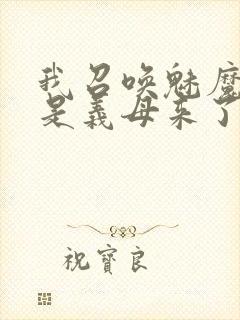 我召唤魅魔
是义母来了
祝寶良